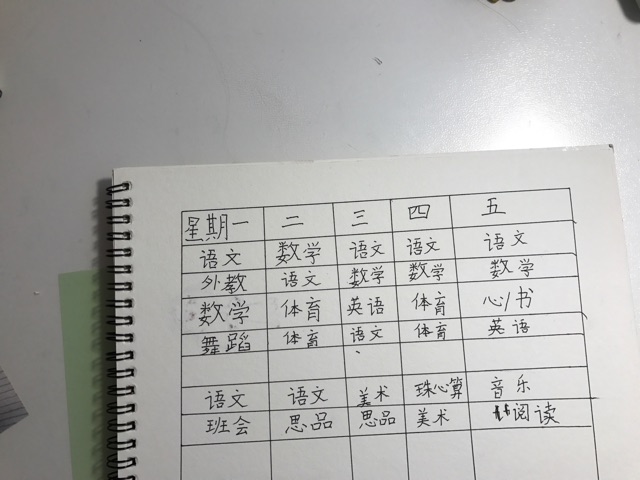 星期一 二 三 四 五
语文 数学 语文 语文 语文
外教 语文 数学 数学 数学
数学 体育 英语 体育 心/书
舞蹈 体育 语文 体育 英语
语文 语文 美术 珠心算 音乐
班会 思品 思品 美术 阅读